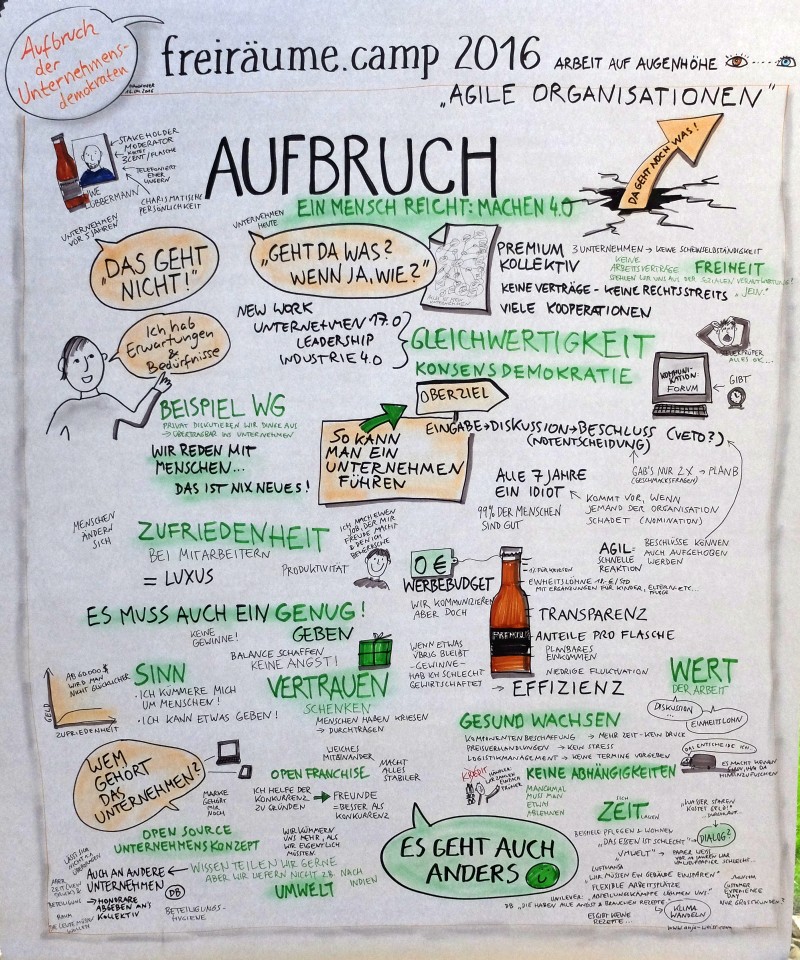 Aufbruch
der
Unternehmens-
demokraten
freiräume.camp 2016
ARBEIT AUF AUGENHÖHE
„AGILE ORGANISATIONEN"
STAKEHOLDER
MODERATOR
KOSTET
3CENT/FLASCHE
TELEFONIERT
EHER
UNGERN
CHARISMATISCHE
PERSÖNLICHKEIT
UWE
LÜBBERMANN
AUFBRUCH
EIN MENSCH REICHT: MACHEN 4.0
DA GEHT NOCH WAS!
UNTERNEHMEN
VOR 5 JAHREN
„DAS GEHT
NICHT!"
UNTERNEHMEN
HEUTE
„GEHT DA WAS?
WENN JA, WIE?"
PREMIUM
KOLLEKTIV
3 UNTERNEHMEN → KEINE SCHEINSELBSTÄNDIGKEIT
KEINE
ARBEITSVERTRÄGE
FREIHEIT
„JEIN."
KEINE VERTRÄGE - KEINE RECHTSSTREITS
VIELE KOOPERATIONEN
Ich hab
Erwartungen
&
Bedürfnisse
NEW WORK
UNTERNEHMEN 17.0
LEADERSHIP
INDUSTRIE 4.0
GLEICHWERTIGKEIT
KONSENSDEMOKRATIE
ALLES OK...
KOMMUNI-
KATION:
FORUM
GIBT
OBERZIEL
BEISPIEL WG
PRIVAT DISKUTIEREN WIR DINGE AUS
→ ÜBERTRAGBAR INS UNTERNEHMEN
WIR REDEN MIT
MENSCHEN...
DAS IST NIX NEUES!
SO KANN
MAN EIN
UNTERNEHMEN
FÜHREN
EINGABE→DISKUSSION→BESCHLUSS
(NOTENTSCHEIDUNG)
(VETO?)
GAB'S NUR 2X → PLAN B
(GESCHMACKSFRAGEN)
ALLE 7 JAHRE
EIN IDIOT
99% DER MENSCHEN
SIND GUT
KOMMT VOR, WENN
JEMAND DER ORGANISATION
SCHADET (NOMINATION)
MENSCHEN
ÄNDERN
SICH
ZUFRIEDENHEIT
BEI MITARBEITERN
= LUXUS
PRODUKTIVITÄT
0 €
WERBEBUDGET
WIR KOMMUNIZIEREN
ABER DOCH
AGIL=
SCHNELLE
REAKTION
BESCHLÜSSE KÖNNEN
AUCH AUFGEHOBEN
WERDEN
EINHEITSLÖHNE 18.-€/STD
TRANSPARENZ
ANTEILE PRO FLASCHE
PLANBARES
EINKOMMEN
NIEDRIGE FLUKTUATION
EFFIZIENZ
PREMIUM
ES MUSS AUCH EIN GENUG!
KEINE
GEWINNE!
GEBEN
BALANCE SCHAFFEN
KEINE ANGST!
WENN ETWAS
ÜBRIG BLEIBT
-GEWINNE-
HAB ICH SCHLECHT
GEWIRTSCHAFTET
AB 60.000$
WIRD MAN
NICHT GLÜCKLICHER
GELD
ZUFRIEDENHEIT
SINN
·ICH KÜMMERE MICH
UM MENSCHEN!
·ICH KANN ETWAS GEBEN!
VERTRAUEN
SCHENKEN
MENSCHEN HABEN KRISEN
→ DURCHTRAGEN
WERT
DER ARBEIT
DISKUSSION
EINHEITSLOHN
GESUND WACHSEN
KOMPONENTENBESCHAFFUNG → MEHR ZEIT - KEIN DRUCK
PREISVERHANDLUNGEN → KEIN STRESS
LOGISTIKMANAGEMENT → KEINE TERMINE VORGEBEN
WEM
GEHÖRT
DAS
UNTERNEHMEN?
MARKE
GEHÖRT
MIR
NOCH
WEICHES
MITEINANDER
MACHT
ALLES
STABILER
OPEN FRANCHISE
ICH HELFE DER
KONKURRENZ
ZU GRÜNDEN
→ FREUNDE
=BESSER ALS
KONKURRENZ
KREDIT
KEINE ABHÄNGIGKEITEN
MANCHMAL
MUSS MAN
ETWAS
ABLEHNEN
DAS ENTSCHEIDE ICH...
OPEN SOURCE
UNTERNEHMENSKONZEPT
WIR KÜMMERN
UNS MEHR, ALS
WIR EIGENTLICH
MÜSSTEN
ES GEHT AUCH
ANDERS
SICH
ZEIT
LASSEN
BEISPIELE PFLEGEN & WOHNEN
„DAS ESSEN IST SCHLECHT"
DIALOG?
„UMWELT"
LUFTHANSA
„WIR MÜSSEN EIN GEBÄUDE EINSPAREN"
FLEXIBLE ARBEITSPLÄTZE
AUCH AN ANDERE
UNTERNEHMEN
DB
→HONORARE
ABGEBEN AN'S
KOLLEKTIV
WISSEN TEILEN WIR GERNE
ABER WIR LIEFERN NICHT Z.B. NACH
INDIEN
UMWELT
BETEILIGUNGS-
HYGIENE
DB „DIE HABEN ALLE ANGST & BRAUCHEN REZEPTE."
ES GIBT KEINE
REZEPTE...
KLIMA
WANDELN